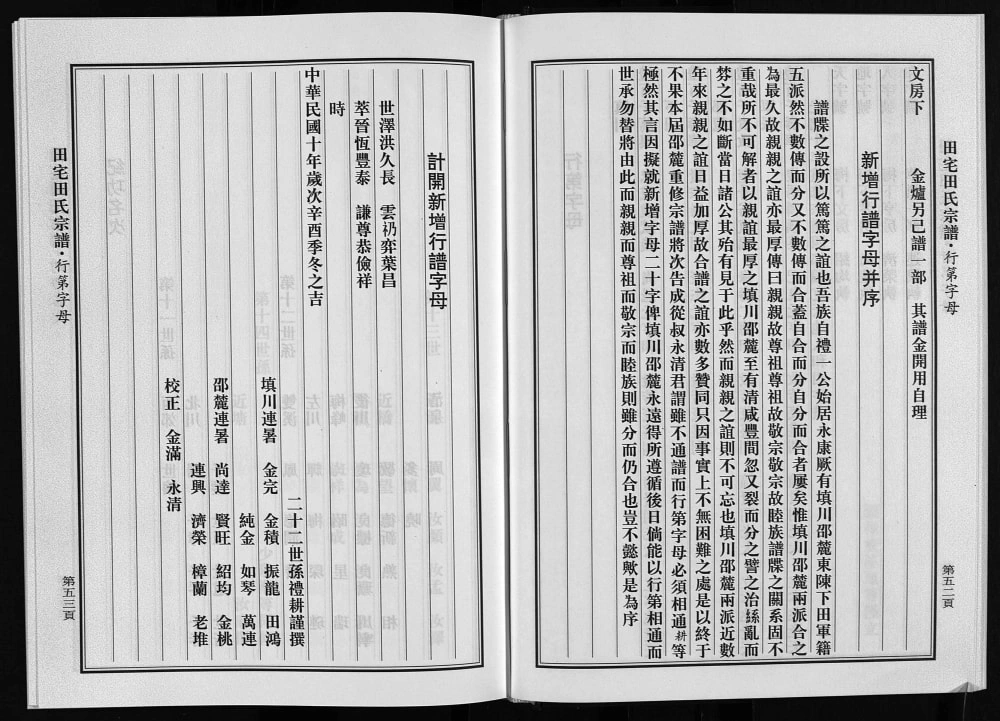 田宅田氏宗譜·行第字母
第五二頁
文房下　金爐另己譜一部　其譜金開用自理
新增行譜字母并序
譜牒之設所以篤篤之誼也吾族自禮一公始居永康厥有填川邵麓東陳下田軍籍
五派然不數傳而分又不數傳而合蓋自合而分自分而合者屢矣惟填川邵麓兩派合之
為最久故親親之誼亦最厚傳曰親親故尊祖尊祖故敬宗敬宗故睦族譜牒之關系固不
重哉所不可解者以親誼最厚之填川邵麓至有清咸豐間忽又裂而分之譬之治絲亂而
棼之不如斷當日諸公其殆有見于此乎然而親親之誼則不可忘也填川邵麓兩派近數
年來親親之誼日益加厚故合譜之誼亦數多贊同只因事實上不無困難之處是以終于
不果本屆邵麓重修宗譜將次告成從叔永清君謂雖不通譜而行第字母必須相通耕等
極然其言因擬就新增字母二十字俾填川邵麓永遠得所遵循後日倘能以行第相通而
世承勿替將由此而親親而尊祖而敬宗而睦族則雖分而仍合也豈不懿歟是為序
計開新增行譜字母
世澤洪久長　雲礽弈葉昌
萃晉恆豐泰　謙尊恭儉祥
時
中華民國十年歲次辛酉季冬之吉
二十二世孫禮耕謹撰
填川連署　金完　金積　振龍　田鴻
純金　如琴　萬連
邵麓連署　尚達　賢旺　紹均　金桃
連興　濟榮　樟蘭　老堆
校正　金滿　永清
田宅田氏宗譜·行第字母
第五三頁